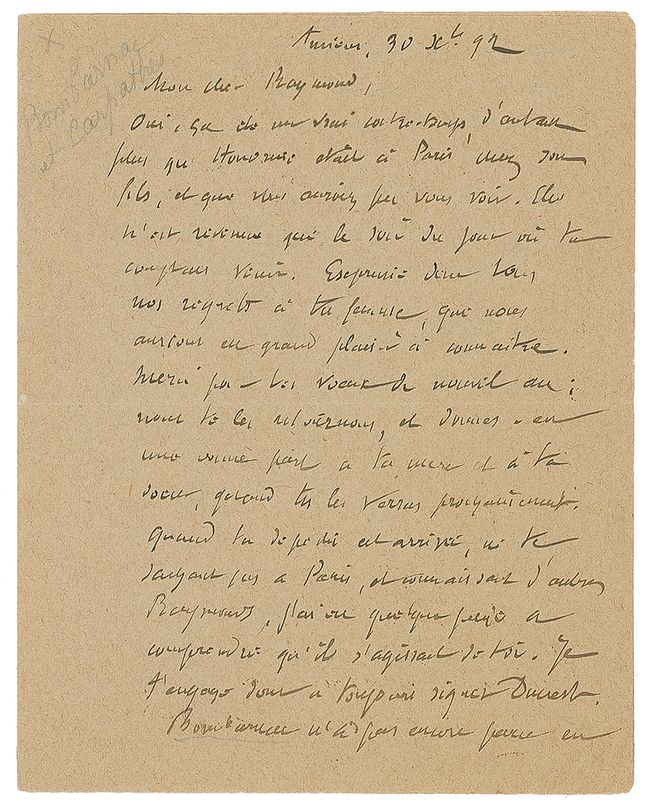 X
Bombarnac
et Carpathes
Amiens, 30 Xb 92
Mon cher Raymond,
Oui, ça été un vrai contre-temps, d'autant
plus qu'Honorine était à Paris, chez son
fils, et que aurions pu vous voir. Elle
n'est revenue que le soir du jour où tu
comptais venir. Exprime donc tous
nos regrets à ta femme, que nous
aurions eu grand plaisir à connaître.
Merci pour tes vœux de nouvel an;
nous te les retournons, et donnes-en
une bonne part à ta mère et à ta
sœur, quand tu les verras prochainement.
Quand ta dépêche est arrivée, ne te
sachant pas à Paris, et connaissant d'autres
Raymonds, j'ai eu quelque peine à
comprendre qu'il s'agissait de toi. Je
t'engage donc à toujours signer Ducrest.
Bombarnac n'a pas encore paru en